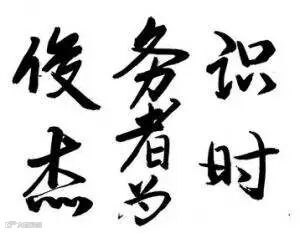 识时
务者为
俊杰